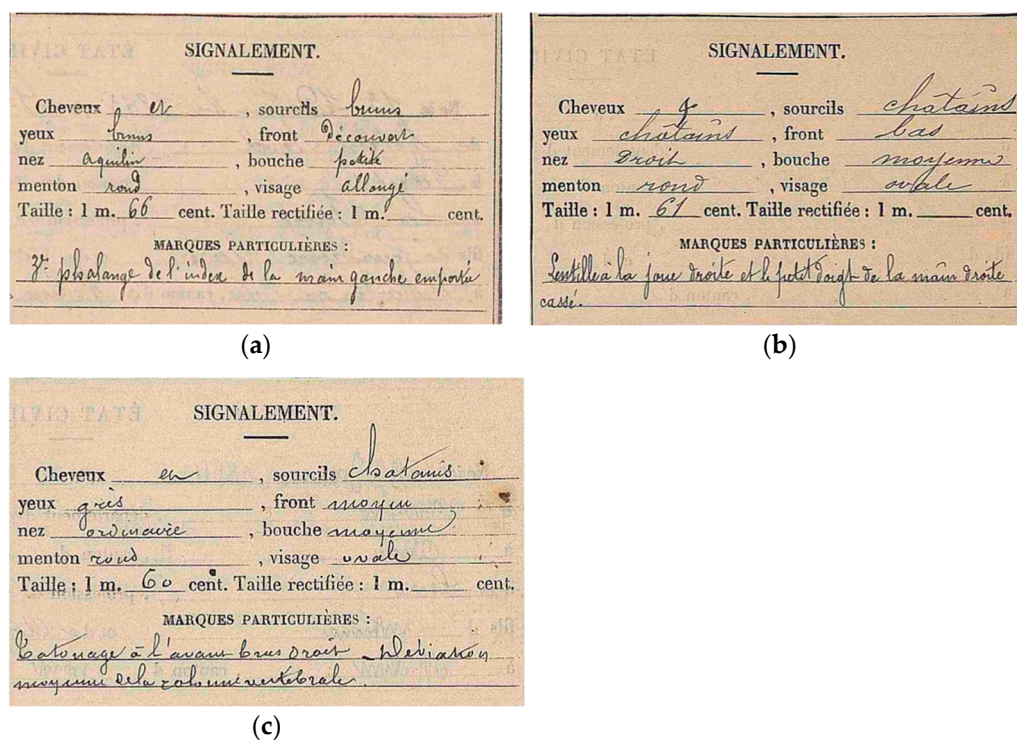 SIGNALEMENT.
Cheveux et , sourcils bruns
yeux bruns , front Découvert
nez aquilin , bouche petite
menton rond , visage allongé
Taille : 1 m. 66 cent. Taille rectifiée : 1 m. cent.
MARQUES PARTICULIÈRES :
3e phalange de l'index de la main gauche emporté
(a)
SIGNALEMENT.
Cheveux & , sourcils chatains
yeux chatains , front bas
nez Droit , bouche moyenne
menton rond , visage ovale
Taille : 1 m. 61 cent. Taille rectifiée : 1 m. cent.
MARQUES PARTICULIÈRES :
Lentille à la joue droite et le petit doigt de la main droite
cassé.
(b)
ÉTAT CIVIL
SIGNALEMENT.
Cheveux en , sourcils chatains
yeux gris , front moyen
nez ordinaire , bouche moyenne
menton rond , visage ovale
Taille : 1 m. 60 cent. Taille rectifiée : 1 m. cent.
MARQUES PARTICULIÈRES :
Tatouage à l'avant bras droit _ Déviation
moyenne de la colonne vertébrale.
(c)